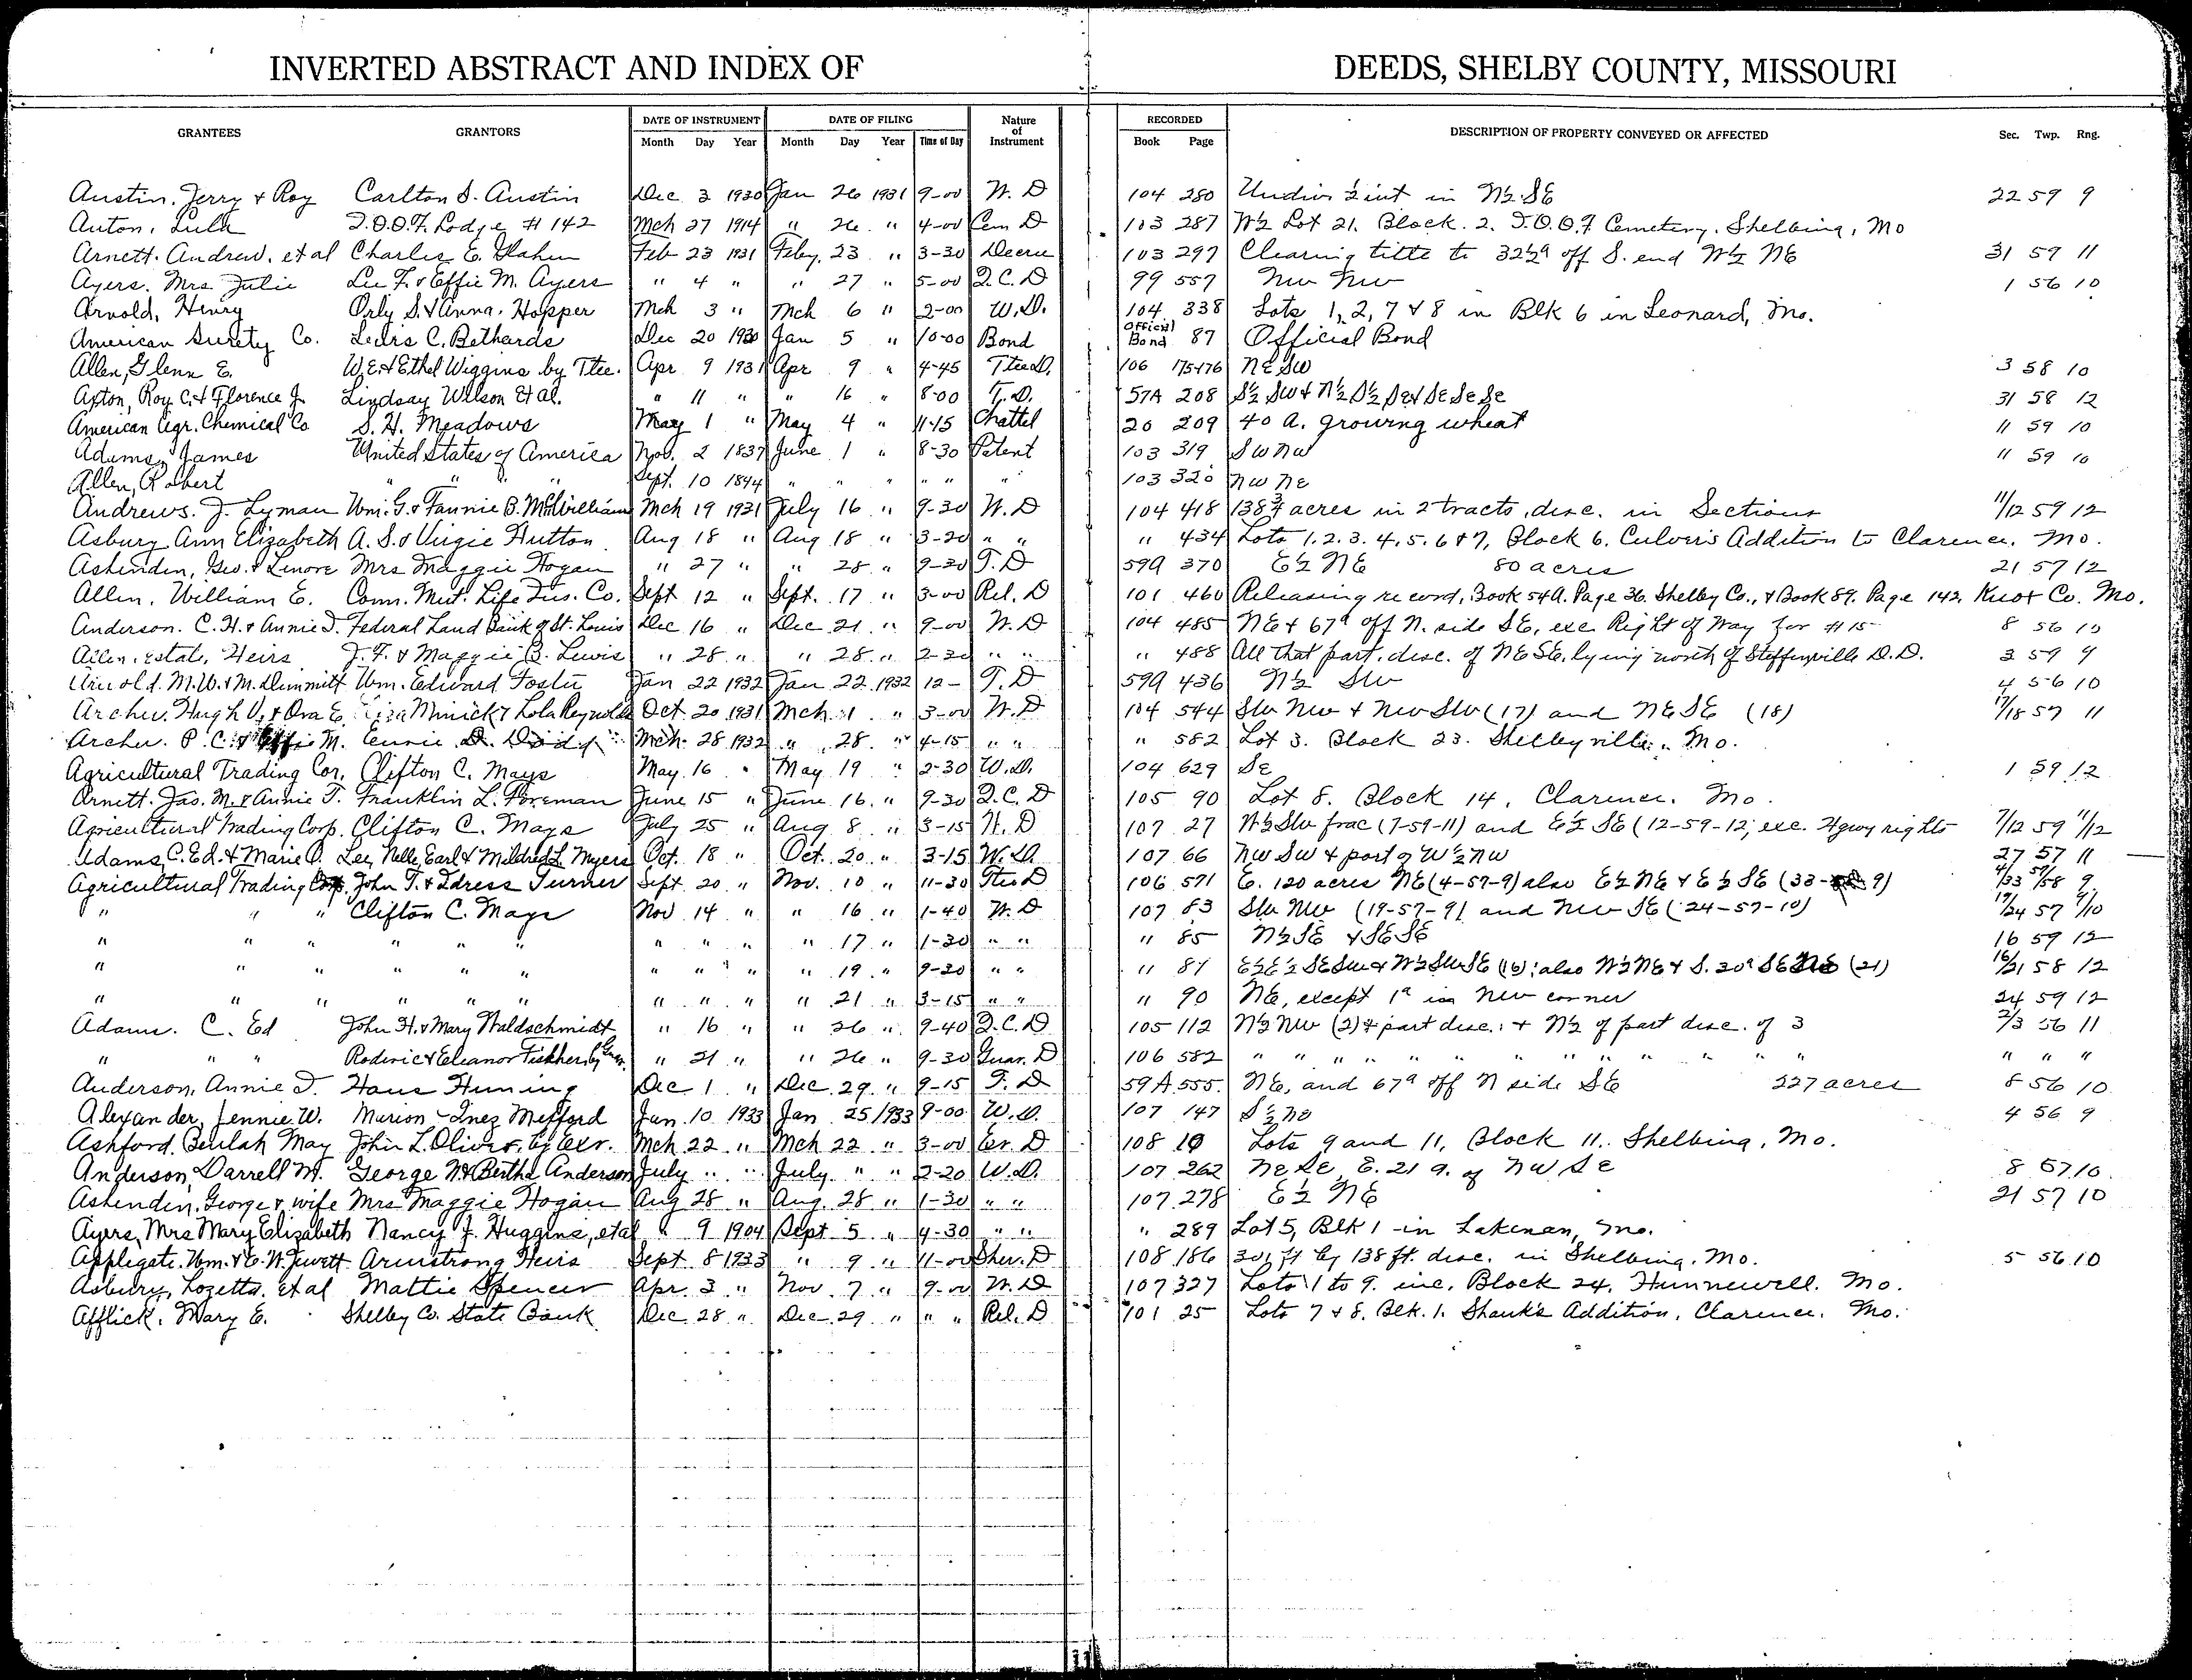 INVERTED ABSTRACT AND INDEX OF DEEDS, SHELBY COUNTY, MISSOURI
GRANTEES GRANTORS DATE OF INSTRUMENT DATE OF FILING Nature of Instrument RECORDED DESCRIPTION OF PROPERTY CONVEYED OR AFFECTED Sec. Twp. Rng.
Month Day Year Month Day Year Time of Day Book Page
Austin, Jerry & Roy Carlton S. Austin Dec 3 1930 Jan 26 1931 9-00 W. D 104 280 Undiv ½ int in N½ SE 22 59 9
Anton, Lula I.O.O.F. Lodge # 142 Mch 27 1914 " 26 " 4-00 Cem D 103 287 W½ Lot 21. Block. 2. I.O.O.F Cemetery. Shelbina, Mo
Arnett. Andrew. et al Charles E. Feb 23 1931 Feby. 23 " 3-30 Decree 103 297 Clearing title to 32½ª off S. end W½ NE 31 59 11
Ayers. Mrs. Julie Lee F. & Effie M. Ayers " 4 " " 27 " 5-00 Q. C. D 99 557 NW NW 1 56 10
Arnold, Henry Orly S. & Anna. Hopper Mch 3 " Mch 6 " 2-00 W. D. 104 338 Lots 1, 2, 7 & 8 in Blk 6 in Leonard, Mo.
American Surety Co. C. Bethards Dec 20 1930 Jan 5 " 10-00 Bond Official Bond 87 Official Bond
Allen, Glenn E. W.E. & Ethel Wiggins by Ttee. Apr 9 1931 Apr 9 " 4-45 Ttee D. 106 175+176 NE SW 3 58 10
Roy C. & Florence J. Lindsay Wilson Et al. " 11 " " 16 " 8-00 T. D. 57A 208 S½ SW & N½ S½ SE & SE SE SE 31 58 12
American Agr. Chemical Co S. H. Meadows May 1 " May 4 " 11-15 Chattel 20 209 40 A. growing wheat 11 59 10
Adams, James United States of America Nov. 2 1837 June 1 " 8-30 Patent 103 319 SW NW 11 59 10
Allen, Robert " " " Sept. 10 1844 " " " " " " 103 320 NW NE
Andrews. J. Lyman Wm. G. & Fannie B. McWilliam Mch 19 1931 July 16 " 9-30 W. D 104 418 138¾ acres in 2 tracts, desc. in Sections 11/12 59 12
Asbury Ann Elizabeth A. S. & Virgie Hutton Aug 18 " Aug 18 " 3-20 " " " 434 Lots 1. 2. 3. 4. 5. 6 & 7, Block 6. Culver's Addition to Clarence, Mo.
Ashenden, Geo. & Lenore Mrs Maggie Hogan " 27 " " 28 " 9-30 T. D 59A 370 E½ NE 80 acres 21 57 12
Allen, William E. Conn. Mut. Life Ins. Co. Sept 12 " Sept. 17 " 3-00 Rel. D 101 460 Releasing record, Book 54A. Page 36. Shelby Co., & Book 89. Page 142, Knox Co. Mo.
Anderson. C. H. & Annie D. Federal Land Bank of St. Louis Dec 16 " Dec 21 " 9-00 W. D 104 485 NE & 67ª off N. side SE, exc Right of Way for # 15 8 56 10
Allen, estate, Heirs J. F. & Maggie B. Lewis " 28 " " 28 " 2-30 " " " 488 All that part, desc. of NE SE, lying north of Steffenville D.D. 3 59 9
Arnold. M.W. & M. Dimmitt Wm. Edward Foster Jan 22 1932 Jan 22 1932 12- T. D 59A 436 N½ SW 4 56 10
Archer. Hugh V. & Ora E. Eliza Minick & Lola Reynolds Oct. 20 1931 Mch. 1 " 3-00 W. D 104 544 SW NW & NW SW (17) and NE SE (18) 17/18 57 11
Archer. P. C. & Effie M. Eunie D. Mch. 28 1932 " 28 " 4-15 " " " 582 Lot 3. Block 23. Shelbyville, Mo.
Agricultural Trading Cor. Clifton C. Mays May. 16 " May 19 " 2-30 W. D. 104 629 SE 1 59 12
Arnett. Jas. M. & Annie T. Franklin L. Foreman June 15 " June 16 " 9-30 Q. C. D 105 90 Lot 8. Block 14, Clarence, Mo.
Agricultural Trading Corp. Clifton C. Mays July 25 " Aug 8 " 3-15 W. D 107 27 W½ SW frac (7-59-11) and E½ SE (12-59-12, exc. Hgwy rights 7/12 59 11/12
Adams, C. Ed. & Marie O. Lee, Nelle, Earl & Mildred L. Myers Oct. 18 " Oct. 20 " 3-15 W. D. 107 66 NW SW & part of W½ NW 27 57 11
Agricultural Trading Corp. John T. & Idress Turner Sept 20 " Nov. 10 " 11-30 Ttee D 106 571 E. 120 acres NE (4-57-9) also E½ NE & E½ SE (33- 9) 4/33 57/58 9
" " " Clifton C. Mays Nov 14 " " 16 " 1-40 W. D 107 83 SW NW (19-57-9) and NW SE (24-57-10) 19/24 57 9/10
" " " " " " " " " " 17 " 1-30 " " " 85 N½ SE & SE SE 16 59 12
" " " " " " " " " " 19 " 9-30 " " " 87 E½ E½ SE SW & W½ SW SE (16); also W½ NE & S. 20ª SE NE (21) 16/21 58 12
" " " " " " " " " " 21 " 3-15 " " " 90 NE, except 1ª in NW corner 24 59 12
Adams. C. Ed John H. & Mary Waldschmidt " 16 " " 26 " 9-40 Q. C. D 105 112 N½ NW (2) & part desc.: & N½ of part desc. of 3 2/3 56 11
" " " Roderic & Eleanor by Guar. " 21 " " 26 " 9-30 Guar. D 106 582 " " " " " " " " " " " " " " "
Anderson, Annie D. Hans Huning Dec 1 " Dec. 29 " 9-15 T. D 59A 555 NE, and 67ª off N side SE 227 acres 8 56 10
Alexander, Jennie W. Marion - Inez Mefford Jan. 10 1933 Jan 25 1933 9-00 W. D. 107 147 S½ NE 4 56 9
Ashford. Beulah May John L. Oliver, by Exr. Mch 22 " Mch 22 " 3-00 Ex. D 108 10 Lots 9 and 11, Block 11. Shelbina, Mo.
Anderson, Darrell W. George N. & Bertha Anderson July " " July " " 2-20 W. D. 107 262 NE SE, E. 21 a. of NW SE 8 57 10
Ashenden, George & wife Mrs Maggie Hogan Aug 28 " Aug. 28 " 1-30 " " 107 278 E½ NE 21 57 10
Ayers, Mrs Mary Elizabeth Nancy J. Huggins, et al " 9 1904 Sept 5 " 4-30 " " " 289 Lot 5, Blk 1 in Lakenan, Mo.
Applegate. Wm. & C. W. Jewett Armstrong Heirs Sept 8 1933 " 9 " 11-00 Sher. D 108 186 30½ ft by 138 ft. desc. in Shelbina, Mo. 5 56 10
Asbury, Lozetta, et al Mattie Spencer Apr. 3 " Nov. 7 " 9-00 W. D 107 327 Lots 1 to 9. inc. Block 24, Hunnewell. Mo.
Afflick. Mary E. Shelby Co. State Bank Dec. 28 " Dec. 29 " " " Rel. D 101 25 Lots 7 & 8. Blk. 1. Shank's Addition, Clarence, Mo.